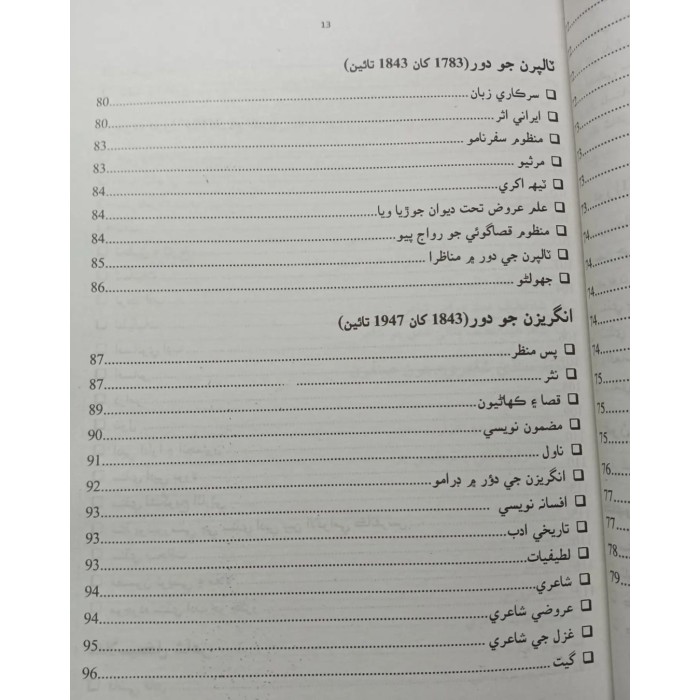 13
ٽالپرن جو دور(1783 کان 1843 تائين)
❑ سرڪاري زبان....................80
❑ ايراني اثر....................80
❑ منظوم سفرنامو....................83
❑ مرثيو....................83
❑ ٽيهه اکري....................84
❑ علم عروض تحت ديوان جوڙيا ويا....................84
❑ منظوم قصاگوئي جو رواج پيو....................84
❑ ٽالپرن جي دور ۾ مناظرا....................85
❑ جھولڻو....................86
انگريزن جو دور(1843 کان 1947 تائين)
❑ پس منظر....................87
❑ نثر....................87
❑ قصا ۽ ڪهاڻيون....................89
❑ مضمون نويسي....................90
❑ ناول....................91
❑ انگريزن جي دؤر ۾ ڊرامو....................92
❑ افسانه نويسي....................93
❑ تاريخي ادب....................93
❑ لطيفيات....................93
❑ شاعري....................94
❑ عروضي شاعري....................94
❑ غزل جي شاعري....................95
❑ گيت....................96
74
74
74
74
75
75
75
76
77
77
78
79